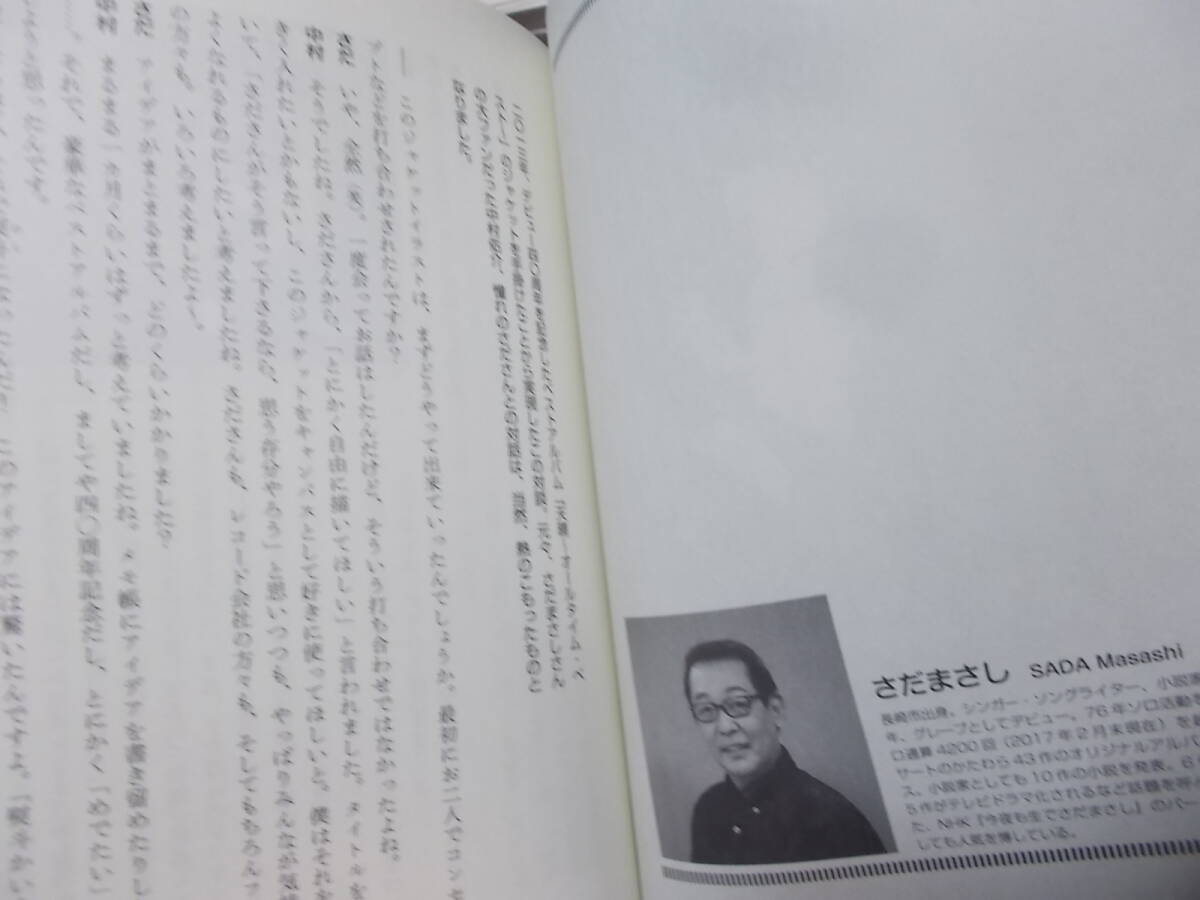 さだまさし SADA Masashi
長崎市出身。シンガー・ソングライター、小説家
年、グレープとしてデビュー。76年ソロ活動を
口通算4200回(2017年2月末現在)を
サートのかたわら43作のオリジナルアルバ
ス。小説家としても10作の小説を発表。6
5作がテレビドラマ化されるなど話題を呼
た、NHK『今夜も生でさだまさし』のパー
しても人気を博している。
二〇一三年、デビュー四〇周年を記念したベストアルバム『天晴〜オールタイム・ベ
スト〜』のジャケットを手掛けたことから実現したこの対談。元々、さだまさしさん
の大ファンだった中村佑介、憧れのさださんとの対話は、当然、熱のこもったものと
なりました。
── このジャケットイラストは、まずどうやって出来ていったんでしょうか。最初にお二人でコンセ
プトなどを打ち合わせされたんですか?
さだ いや、全然(笑)。一度会ってお話はしたんだけど、そういう打ち合わせではなかったよね。
中村 そうでしたね。さださんから、「とにかく自由に描いてほしい」と言われました。タイトルを
きく入れたいとかもないし、このジャケットをキャンバスとして好きに使ってほしいと。僕はそれを
いて、「さださんがそう言って下さるなら、思う存分やろう」と思いつつも、やっぱりみんなが気持
よくなれるものにしたいと考えましたね。さださんも、レコード会社の方々も、そしてもちろんフ
の方々も。いろいろ考えましたよ。
さだ アイデアがまとまるまで、どのくらいかかりました?
中村 まるまる一カ月くらいはずっと考えていましたね。メモ帳にアイデアを書き溜めたりし
……。それで、豪華なベストアルバムだし、ましてや四〇周年記念だし、とにかく「めでたい」
しようと思ったんです。